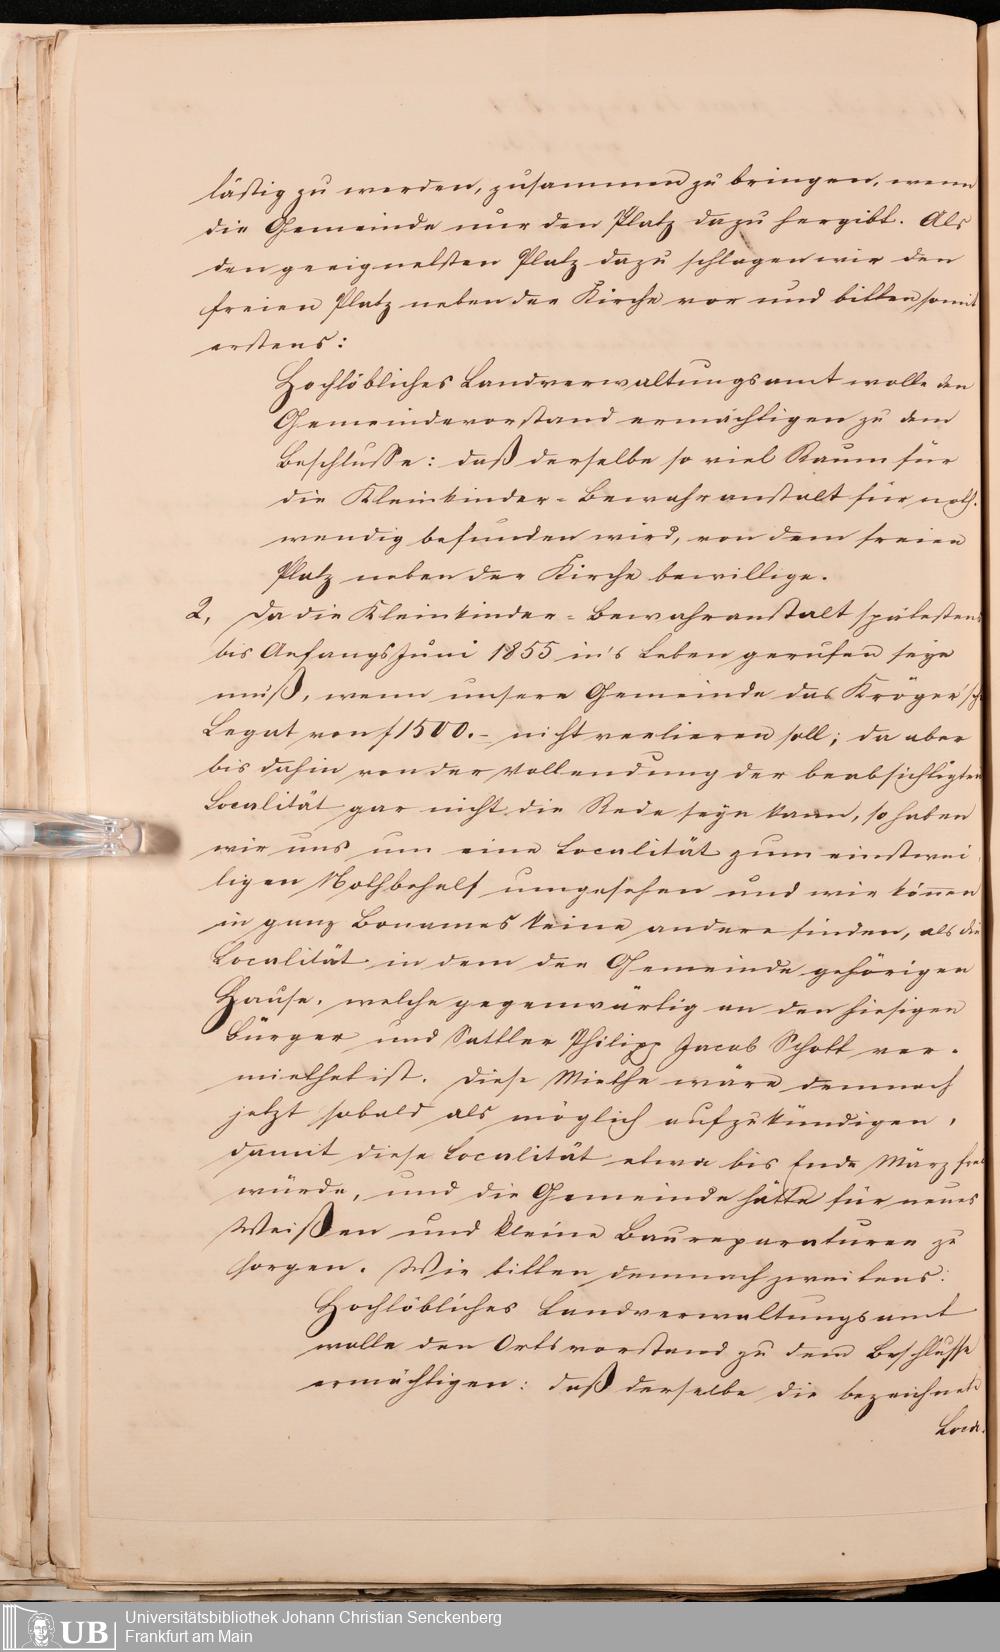 lästig zu werden, zusammen zu bringen, wenn
die Gemeinde nur den Platz dazu hergibt. Als
den geeignetsten Platz dazu schlagen wir den
freien Platz neben der Kirche vor und bitten somit
erstens:
Hochlöbliches Landverwaltungsamt wolle den
Gemeindevorstand ermächtigen zu dem
Beschlusse: daß derselbe so viel Raum für
die Kleinkinder-Bewahranstalt für noth-
wendig befunden wird, von dem freien
Platz neben der Kirche bewillige.
2, Da die Kleinkinder-Bewahranstalt spätestens
bis Anfangs Juni 1855 in's Leben gerufen seyn
muß, wenn unsere Gemeinde das Kröger'sche
Legat von f 1500.- nicht verlieren soll; da aber
bis dahin von der Vollendung der beabsichtigten
Localität gar nicht die Rede seyn kann, so haben
wir uns um eine Localität zum einstwei-
ligen Nothbehelf umgesehen und wir können
in ganz Bonames keine andere finden, als die
Localität in dem der Gemeinde gehörigen
Hause, welche gegenwärtig an den hiesigen
Bürger und Sattler Philipp Jacob Schott ver-
miethet ist. Diese Miethe wäre demnach
jetzt sobald als möglich aufzukündigen,
damit diese Localität etwa bis Ende März frei
würde, und die Gemeinde hätte für neues
Weißen und kleine Baureparaturen zu
sorgen. Wir bitten demnach zweitens:
Hochlöbliches Landverwaltungsamt
wolle den Ortsvorstand zu dem Beschlusse
ermächtigen: daß derselbe die bezeichnete
Loca-
UB
Universitätsbibliothek Johann Christian Senckenberg
Frankfurt am Main